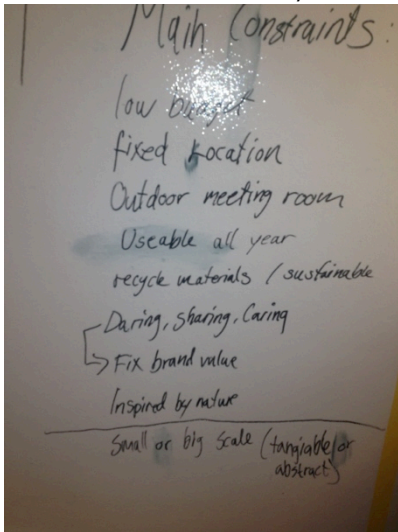 Main Constraints:
low budget
fixed Location
Outdoor meeting room
Useable all year
recycle materials / sustainable
Daring, Sharing, Caring
Fix brand value
Inspired by nature
Small or big scale (tangiable or
abstract)